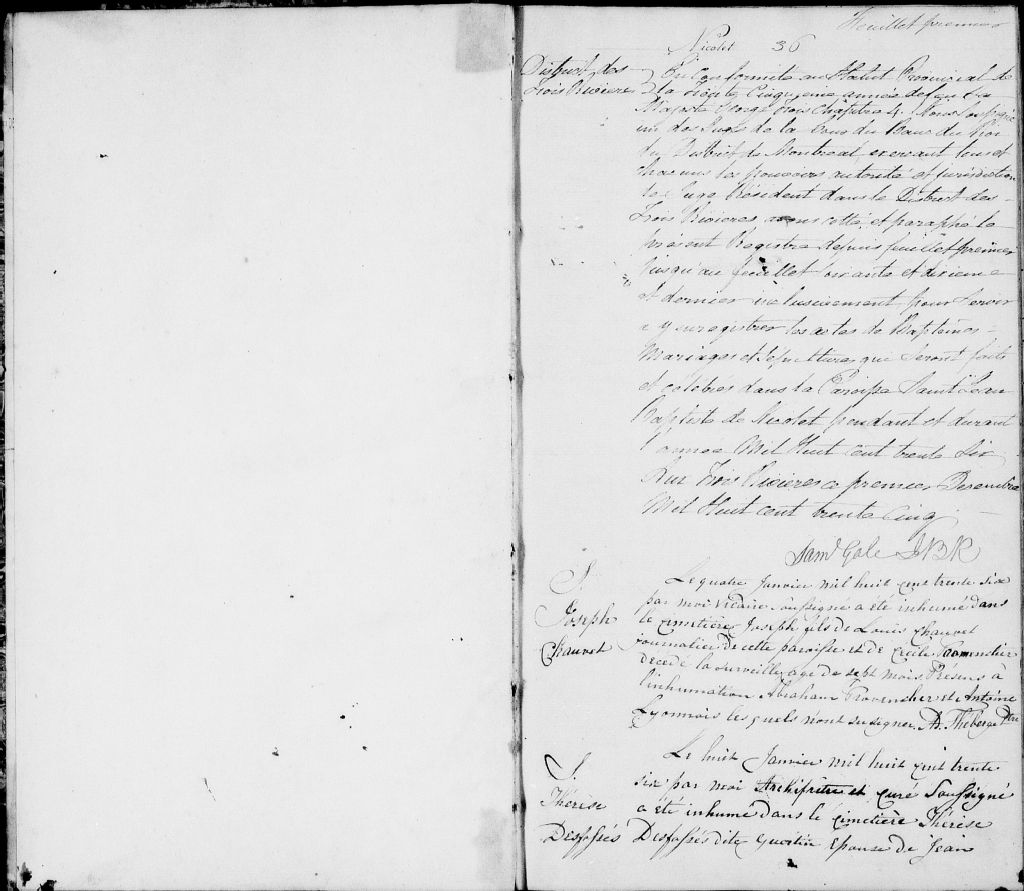 Feuillet premier
Nicolet 36
District des
Trois Rivieres
En Conformité au Statut Provincial de
la trente Cinquieme année de feu Sa
Majesté George trois Chapitre 4. Nous Soussigné
un des Juges de la Cour du Banc du Roi
du District de Montreal exercant tous et
chacuns les pouvoirs autorité et jurisdiction
de Juge Résident dans le District des
Trois Rivieres avons cotté et paraphé le
présent Registre depuis feuillet premier
jusqu'au feuillet et
et dernier inclusivement pour Servir
a y enregistrer les actes de Baptêmes
Mariages et Sépultures qui Seront faits
et célébrés dans la Paroisse Saint Jean
Baptiste de Nicolet pendant et durant
l'année Mil Huit cent trente Six
Aux Trois Rivieres ce premier Decembre
Mil Huit cent trente Cinq
Saml Gale JBR
S.
Joseph
Chauvet
Le quatre Janvier mil huit cent trente six
par moi vicaire Soussigné a été inhumé dans
le cimetière Joseph fils de Louis Chauvet
journalier de cette paroisse et de Cecile
décédé la surveille agé de sept mois Présens à
l'inhumation Abraham Provencher et Antoine
Lyonnais les quels n'ont su signer. D. Theberge Ptre
S.
Thérèse
Desfossés
Le huit Janvier mil huit cent trente
six par moi Archiprêtre et curé Soussigné
a été inhumé dans le cimetière Thérèse
Desfossés dite epouse de Jean